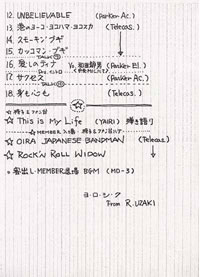 12. UNBELIEVABLE (Parker Ac.)
13. 港のヨーコ・ヨコハマ・ヨコスカ (Telecas.)
14. スモーキン・ブギ
15. カッコマン・ブギ
16. 愛しのティナ Vo. 和田静男 (Parker El.)
17. サクセス (Parker Ac.)
18. 身も心も (Telecas.)
☆ This is My Life (YAIRI) 弾き語り
☆ OIRA JAPANESE BANDMAN (Telecas.)
☆ ROCK'N ROLL WIDOW
◦ 客出し・MEMBER退場 BGM (MD-3)
ヨ・ロ・シ・ク
From R. UZAKI